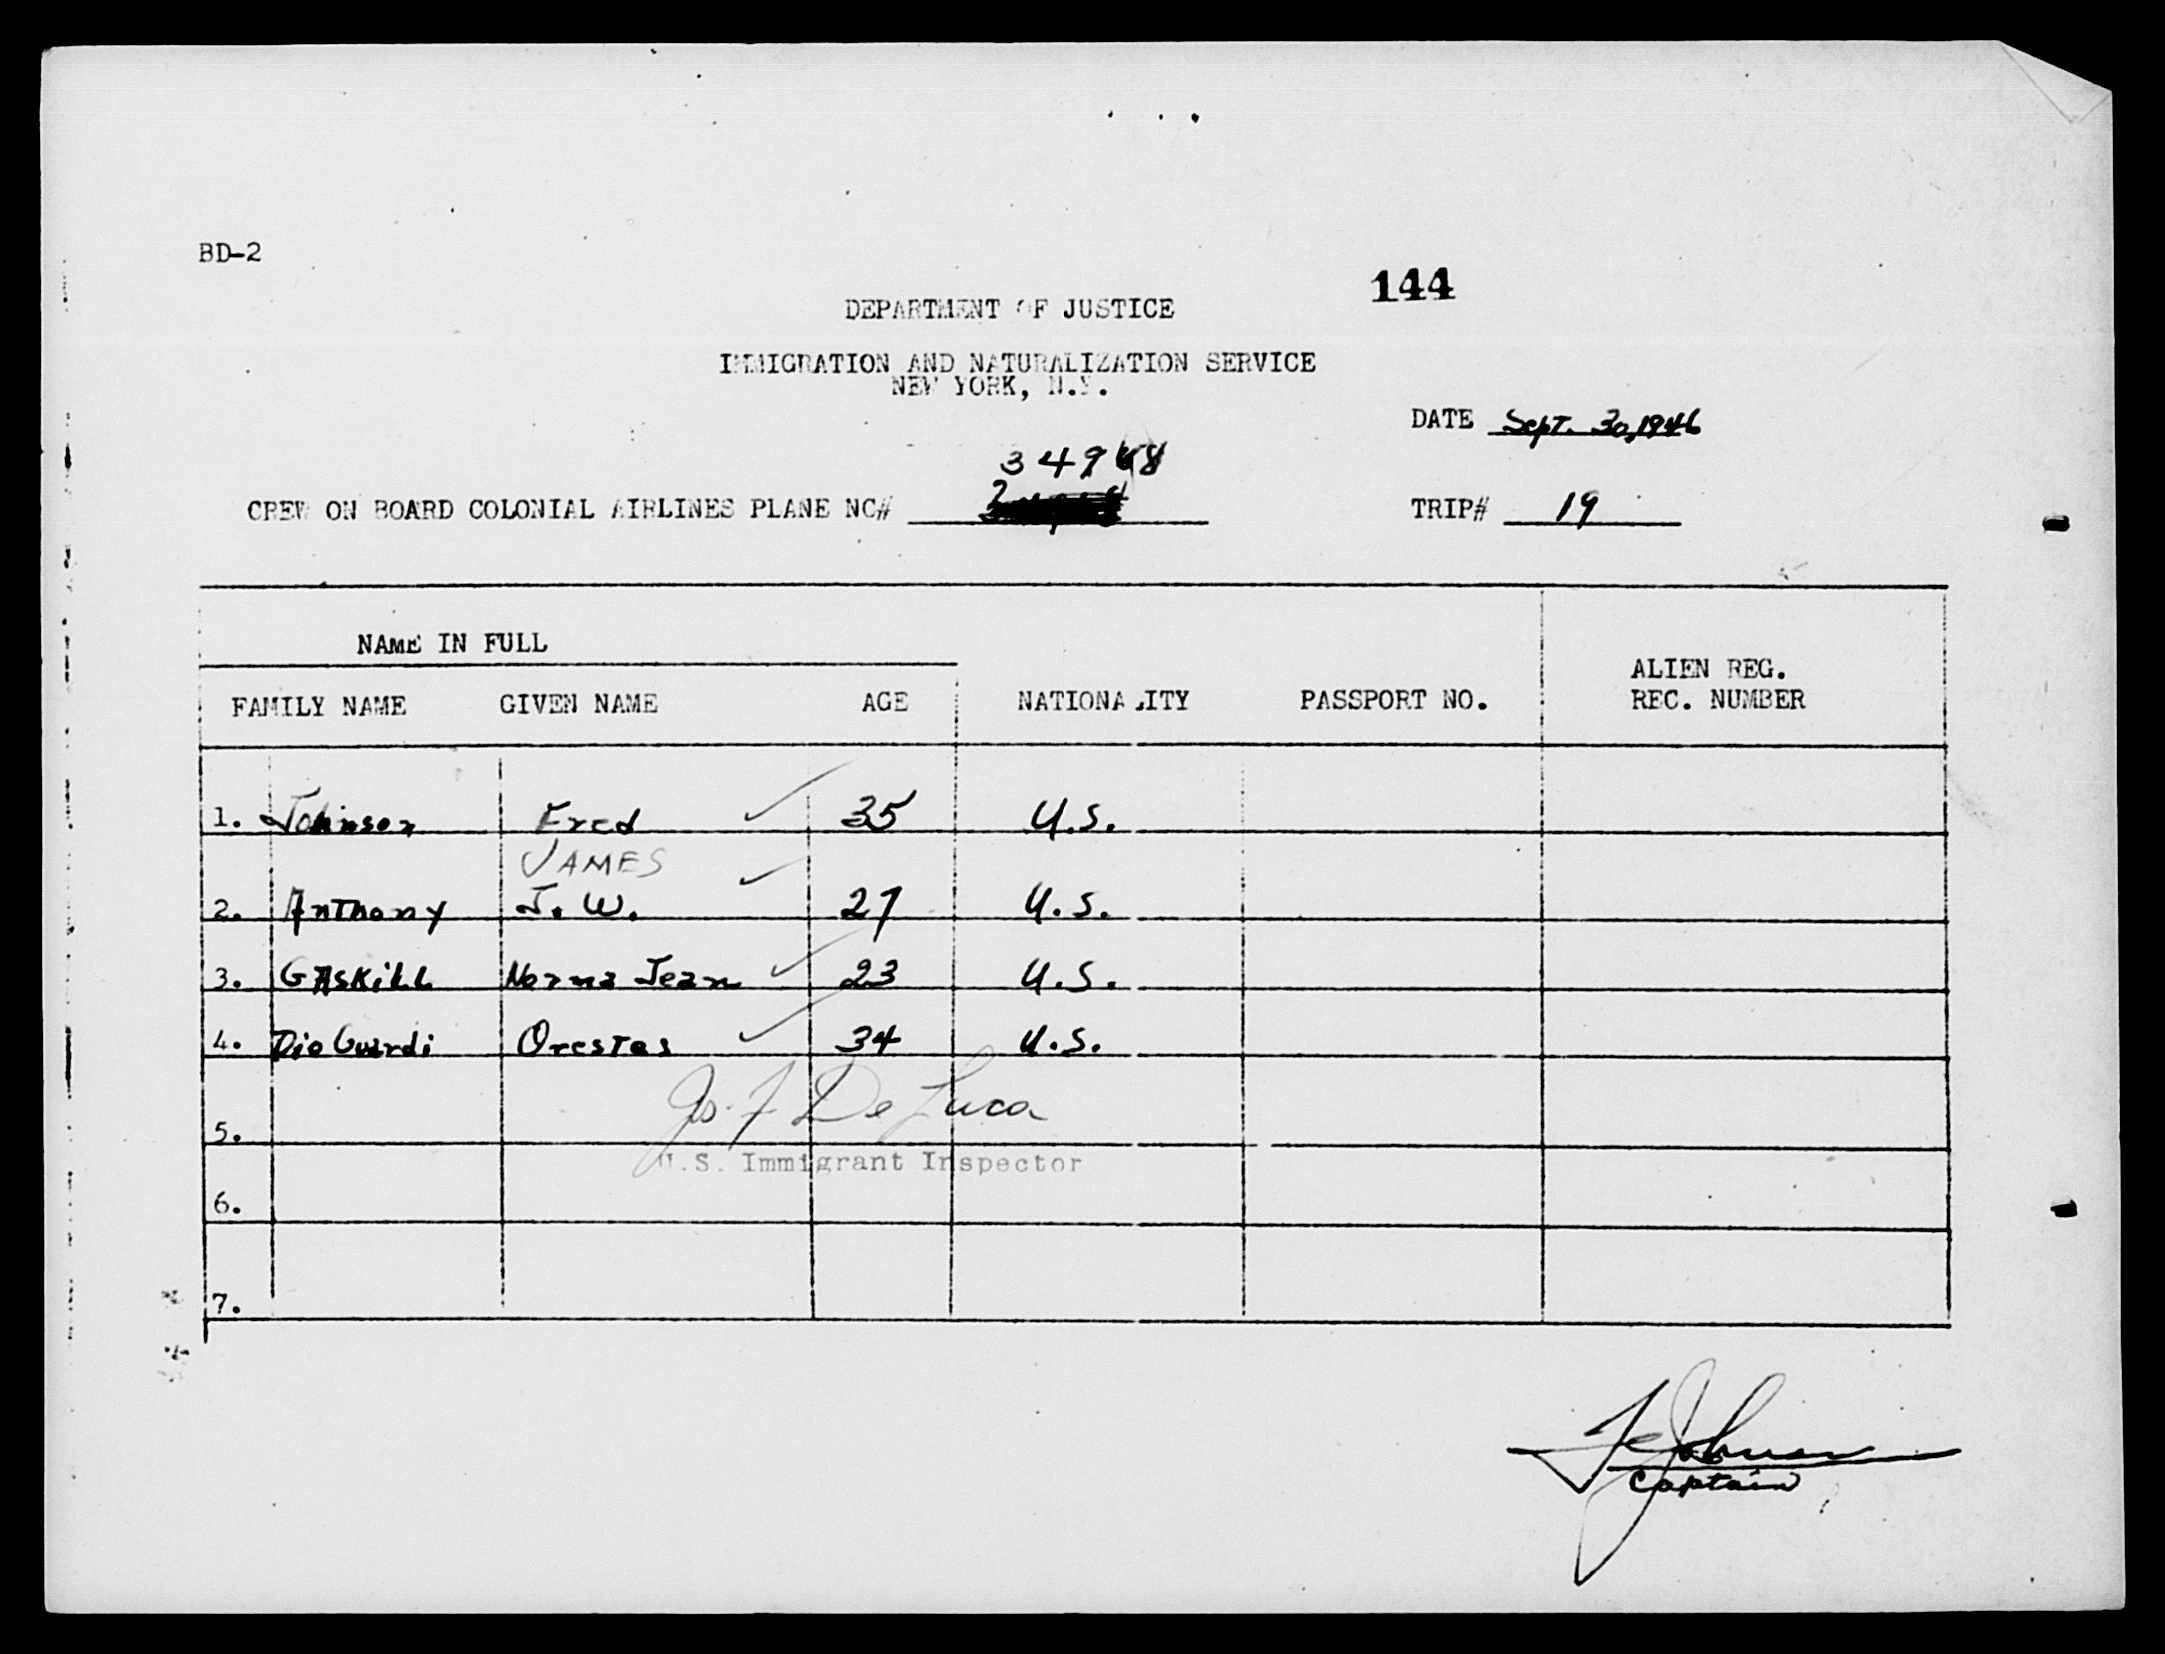 BD-2
144
DEPARTMENT OF JUSTICE
IMMIGRATION AND NATURALIZATION SERVICE
NEW YORK, N.Y.
DATE Sept. 30, 1946
CREW ON BOARD COLONIAL AIRLINES PLANE NC#
TRIP# 19
NAME IN FULL
FAMILY NAME GIVEN NAME AGE NATIONALITY PASSPORT NO. ALIEN REG. REC. NUMBER
1. Johnson Fred 35 U.S.
JAMES
2. Anthony J. W. 27 U.S.
3. GAskill Norma Jean 23 U.S.
4. DioGuardi Orestes 34 U.S.
Jos. F. De Luca
5.
U.S. Immigrant Inspector
6.
7.
F Johnson
Captain